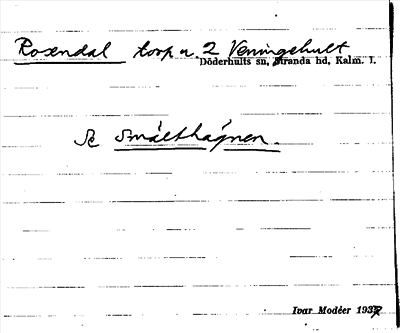 Rosendal torp u. 2 Veningehult
Döderhults sn, Stranda hd, Kalm. l.
Se Smälthagnen.
Ivar Modéer 1937